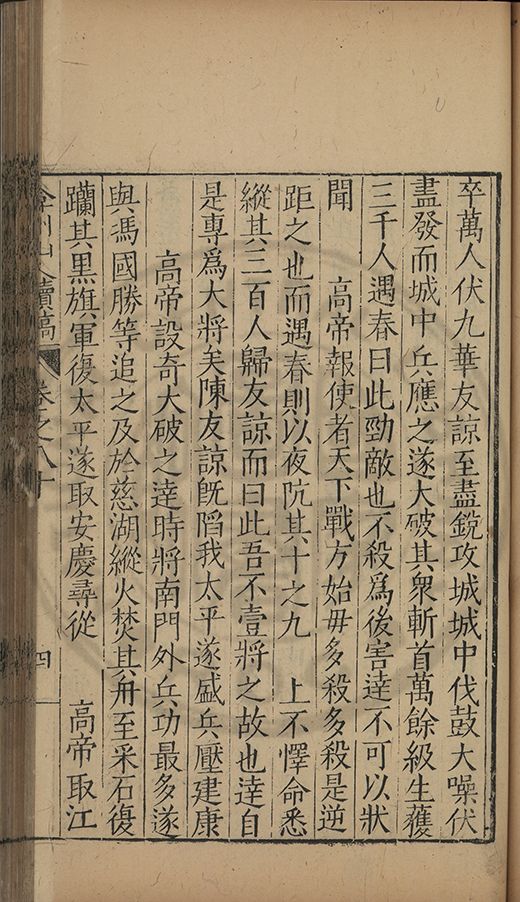 卒萬人伏九華友諒至盡銳攻城城中伐鼓大噪伏
盡發而城中兵應之遂大破其衆斬首萬餘級生獲
三千人遇春曰此勁敵也不殺爲後害達不可以狀
聞 高帝報使者天下戰方始毋多殺多殺是逆
距之也而遇春則以夜阬其十之九 上不懌命悉
縱其三百人歸友諒而曰此吾不壹將之故也達自
是專爲大將矣陳友諒旣陷我太平遂盛兵壓建康
高帝設奇大破之達時將南門外兵功最多遂
與馮國勝等追之及於慈湖縱火焚其舟至采石復
躪其黑旗軍復太平遂取安慶尋從 高帝取江
續稿 卷之八十 四